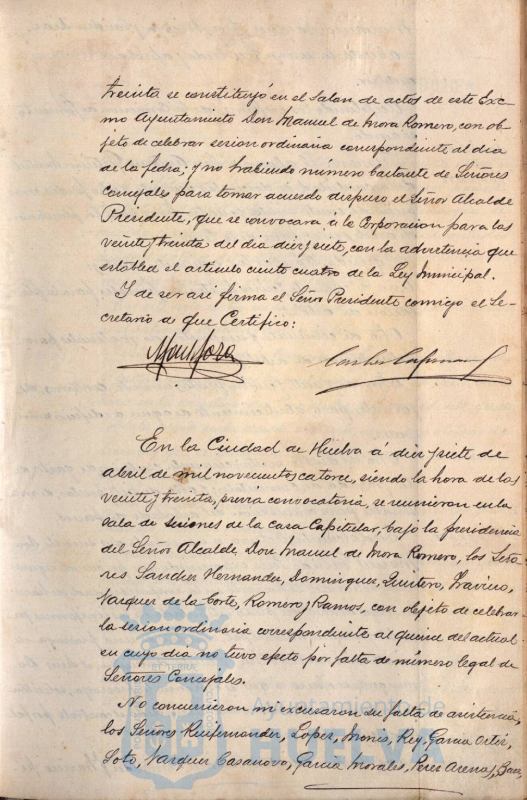 treinta se constituyó en el Salon de actos de este Exc
mo Ayuntamiento Don Manuel de Mora Romero, con ob-
jeto de celebrar sesion ordinaria correspondiente al dia
de la fecha; y no habiendo número bastante de Señores
Concejales para tomar acuerdo dispuso el Señor Alcalde
Presidente, que se convocara á la Corporacion para las
veinte y treinta del dia diez y siete, con la advertencia que
establece el articulo ciento cuatro de la Ley Municipal.
Y de ser asi firma el Señor Presidente conmigo el Se-
cretario de que Certifico:
En la Ciudad de Huelva á diez y siete de
abril de mil novecientos catorce, siendo la hora de las
veinte y treinta, previa convocatoria, se reunieron en la
sala de sesiones de la casa Capitular, bajo la presidencia
del Señor Alcalde, Don Manuel de Mora Romero, los Seño-
res Sanchez Hernandez, Dominguez, Quintero, Travieso,
Vazquez de la Corte, Romero y Ramos, con objeto de celebrar
la sesion ordinaria correspondiente al quince del actual
en cuyo dia no tuvo efecto por falta de número legal de
Señores Concejales.
No concurrieron ni excusaron su falta de asistencia,
los Señores Ruifernandez, Lopez, Monis, Rey, Garcia Ortiz,
Soto, Vazquez Casanova, Garcia Morales, Perez Arenas,
Ayuntamiento de
HUELVA